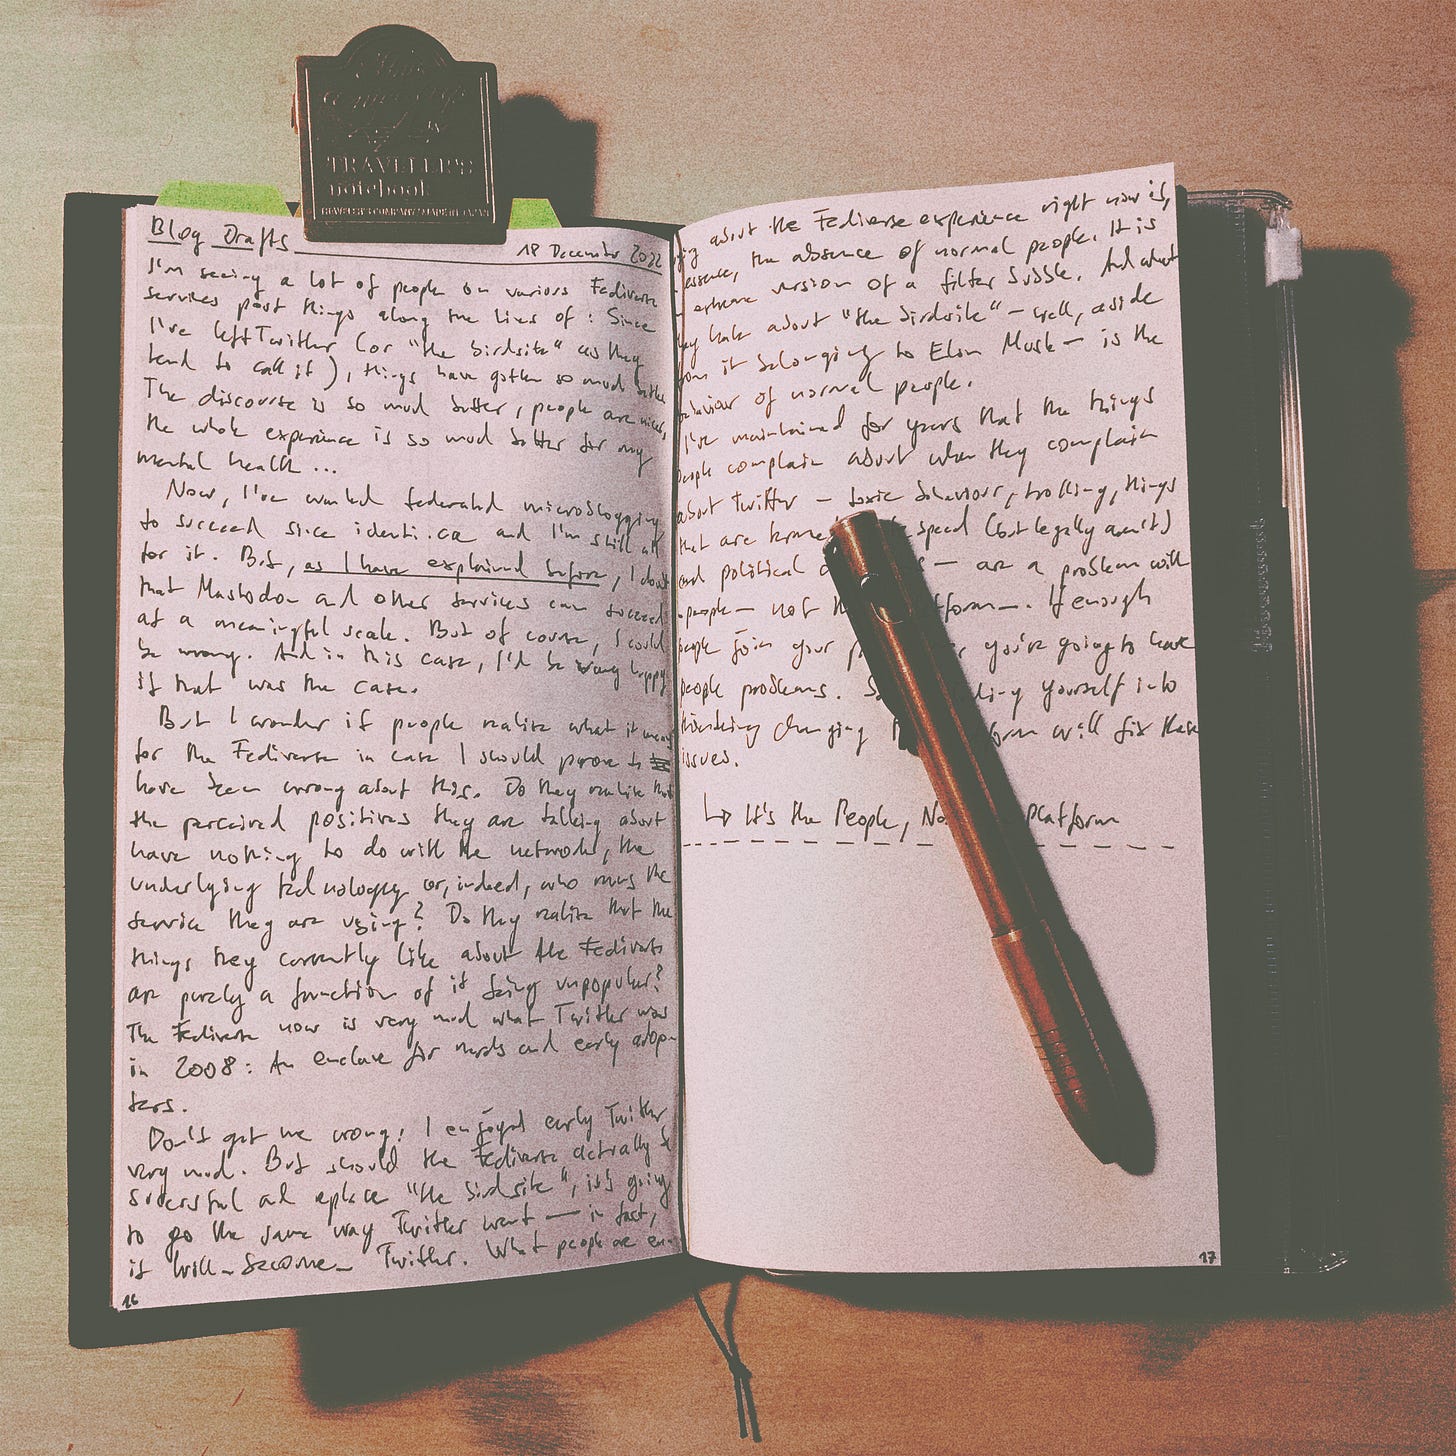 TRAVELER'S
notebook
TRAVELER'S COMPANY MADE IN JAPAN
Blog Drafts
18 December 2022
I'm seeing a lot of people on various Fediverse
services post things along the lines of: Since
I've left Twitter (or "the birdsite" as they
tend to call it), things have gotten so much better
The discourse is so much better, people are nicer,
the whole experience is so much better for my
mental health ...
Now, I've wanted federated microblogging
to succeed since identi.ca and I'm still all
for it. But, as I have explained before, I don't
that Mastodon and other services can succeed
at a meaningful scale. But of course, I could
be wrong. And in this case, I'd be happy
if that was the case.
But I wonder if people realise what it means
for the Fediverse in case I should prove to
have been wrong about this. Do they realise that
the perceived positives they are talking about
have nothing to do with the network, the
underlying technology or, indeed, who runs the
service they are using? Do they realise that the
things they currently like about the Fediverse
are purely a function of it being unpopular?
The Fediverse now is very much what Twitter was
in 2008: An enclave for nerds and early adop-
ters.
Don't get me wrong! I enjoyed early Twitter
very much. But should the Fediverse actually be
successful and replace "the birdsite", it's going
to go the same way Twitter went — in fact,
it will _become_ Twitter. What people are en-
16
about the Fediverse experience right now is,
essence, the absence of normal people. It is
extreme version of a filter bubble. And what
they hate about "the birdsite" — well, aside
from it belonging to Elon Musk — is the
behaviour of normal people.
I've maintained for years that the things
people complain about when they complain
about Twitter — toxic behaviour, trolling, things
that are speech (but legally aren't)
and political — are a problem with
people — not the . If enough
people join your you're going to have
people problems. yourself into
thinking changing the will fix these
issues.
↳ It's the People, Platform
17